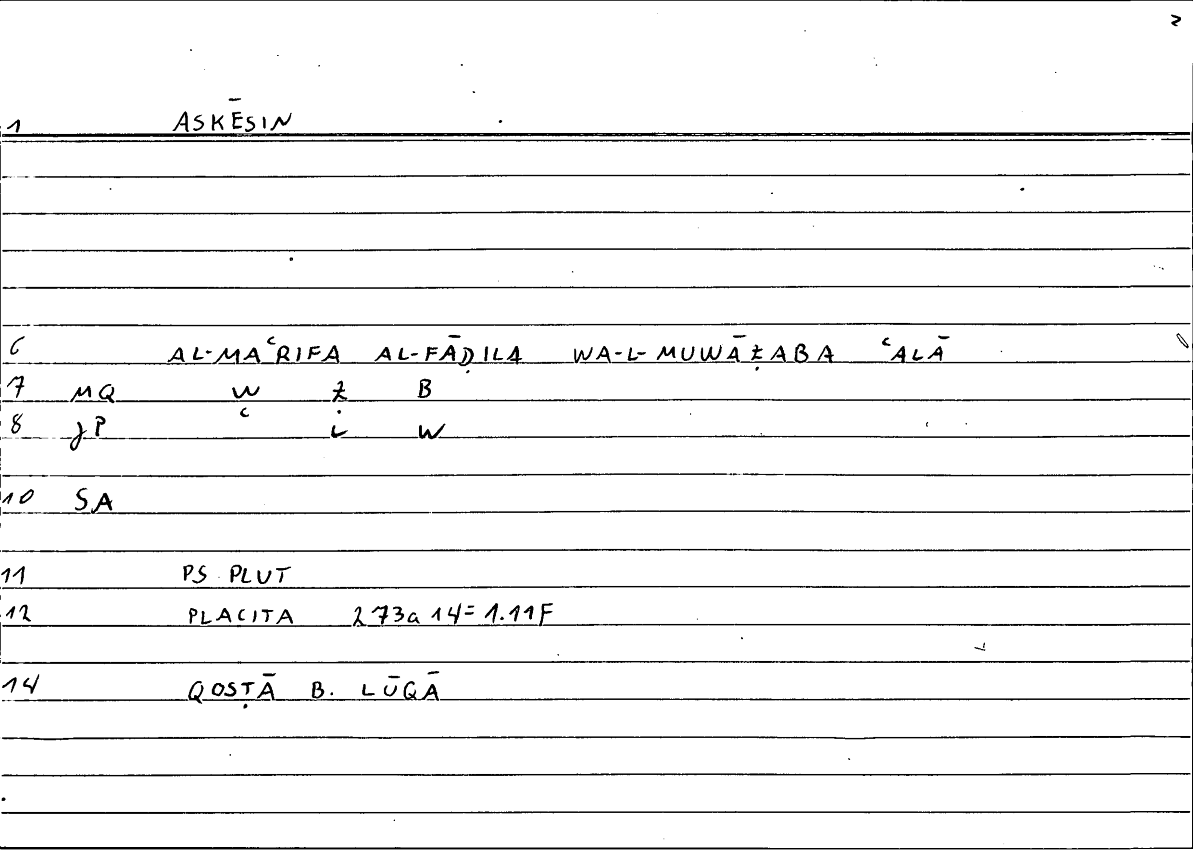 2
1 ASKĒSIN
6 AL-MAʿRIFA AL-FĀḌILA WA-L-MUWĀẒABA ʿALĀ
7 MQ W Ẓ B
8 JP ʿ L W
10 SA
11 PS PLUT
12 PLACITA 273a 14 = 1.11F
14 QOSṬĀ B. LŪQĀ